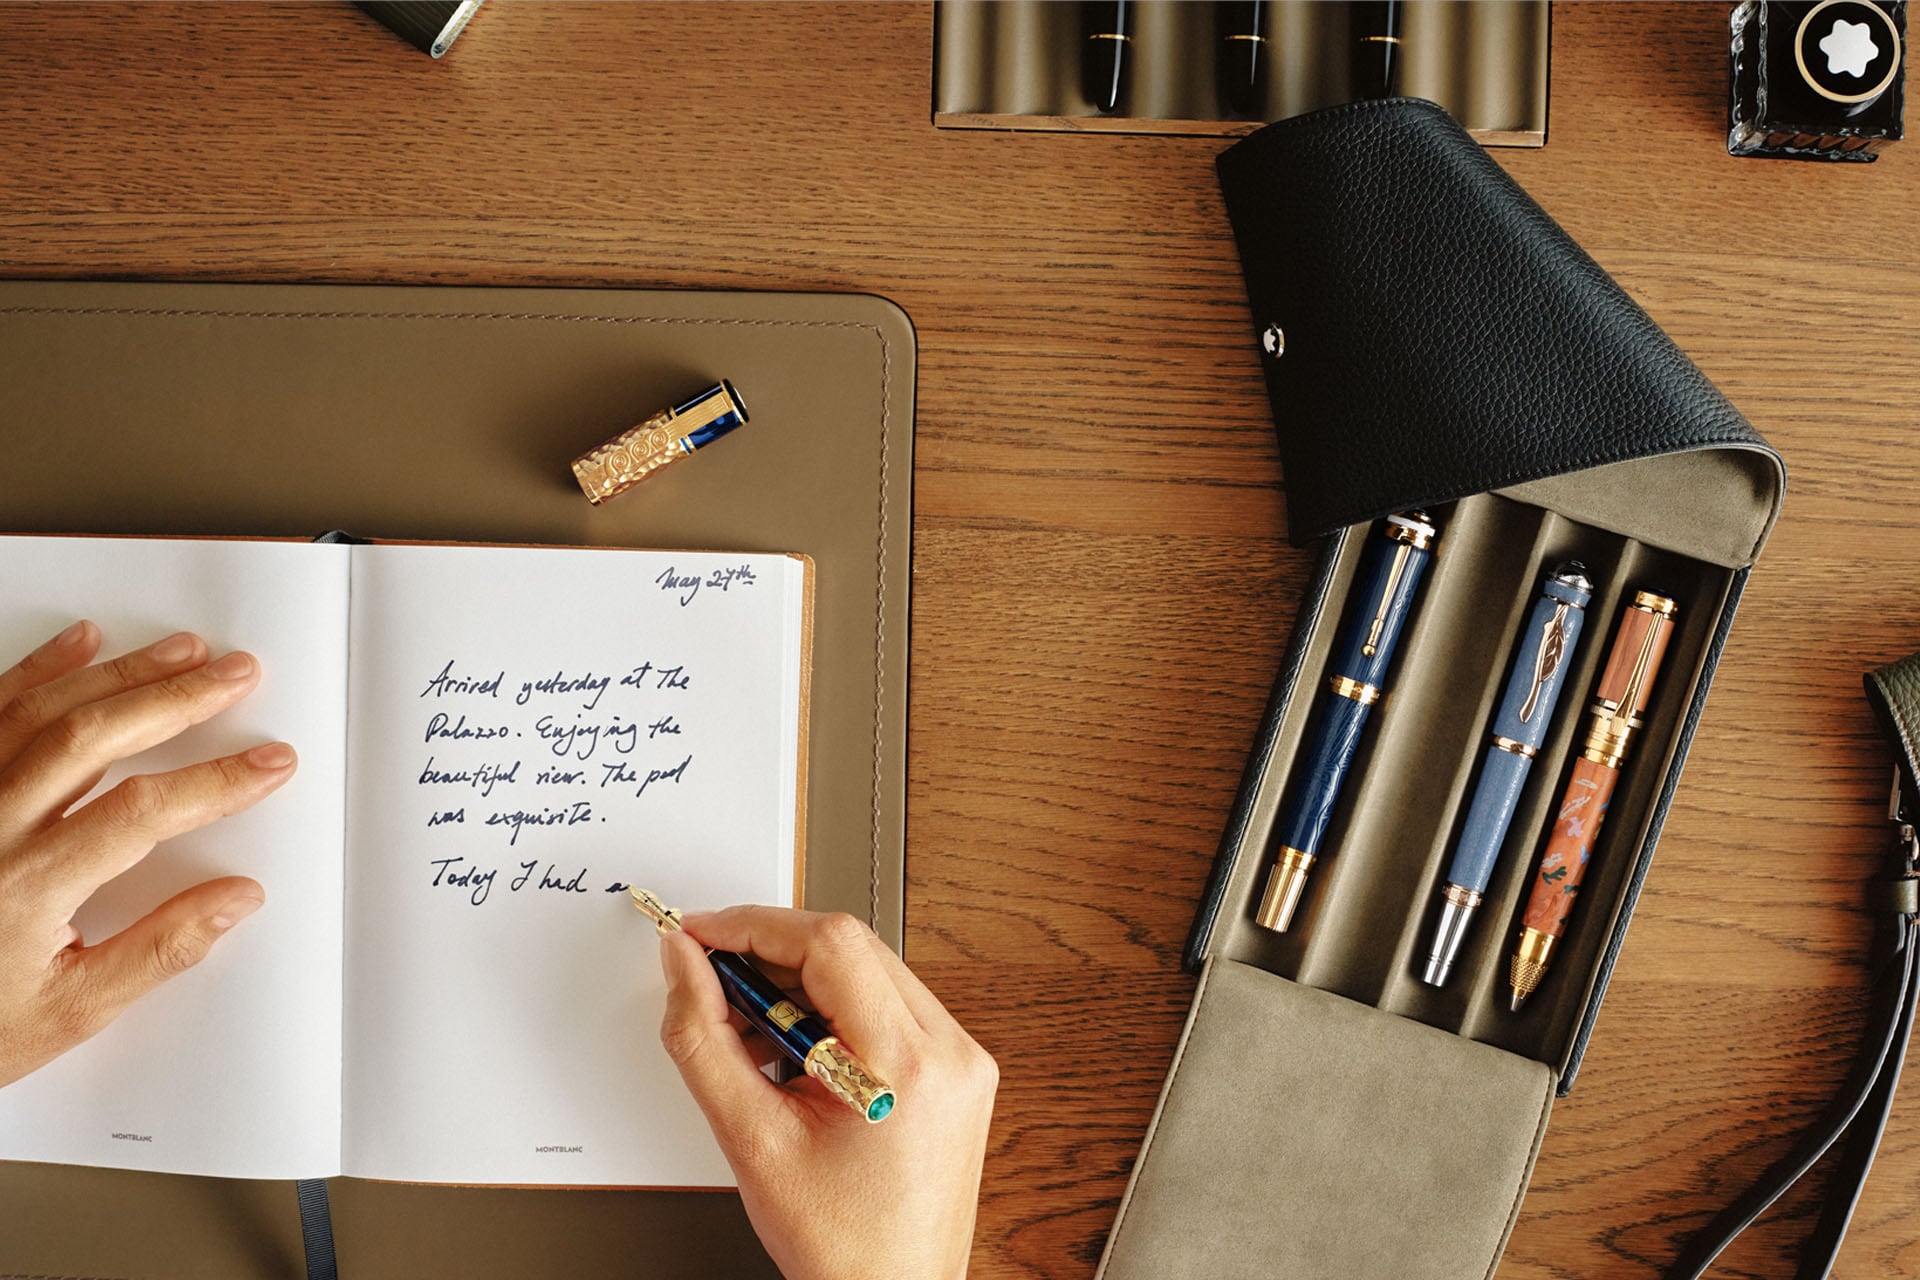 May 27th
Arrived yesterday at The
Palazzo. Enjoying the
beautiful view. The pool
was exquisite.
Today I had a
MONTBLANC
MONTBLANC